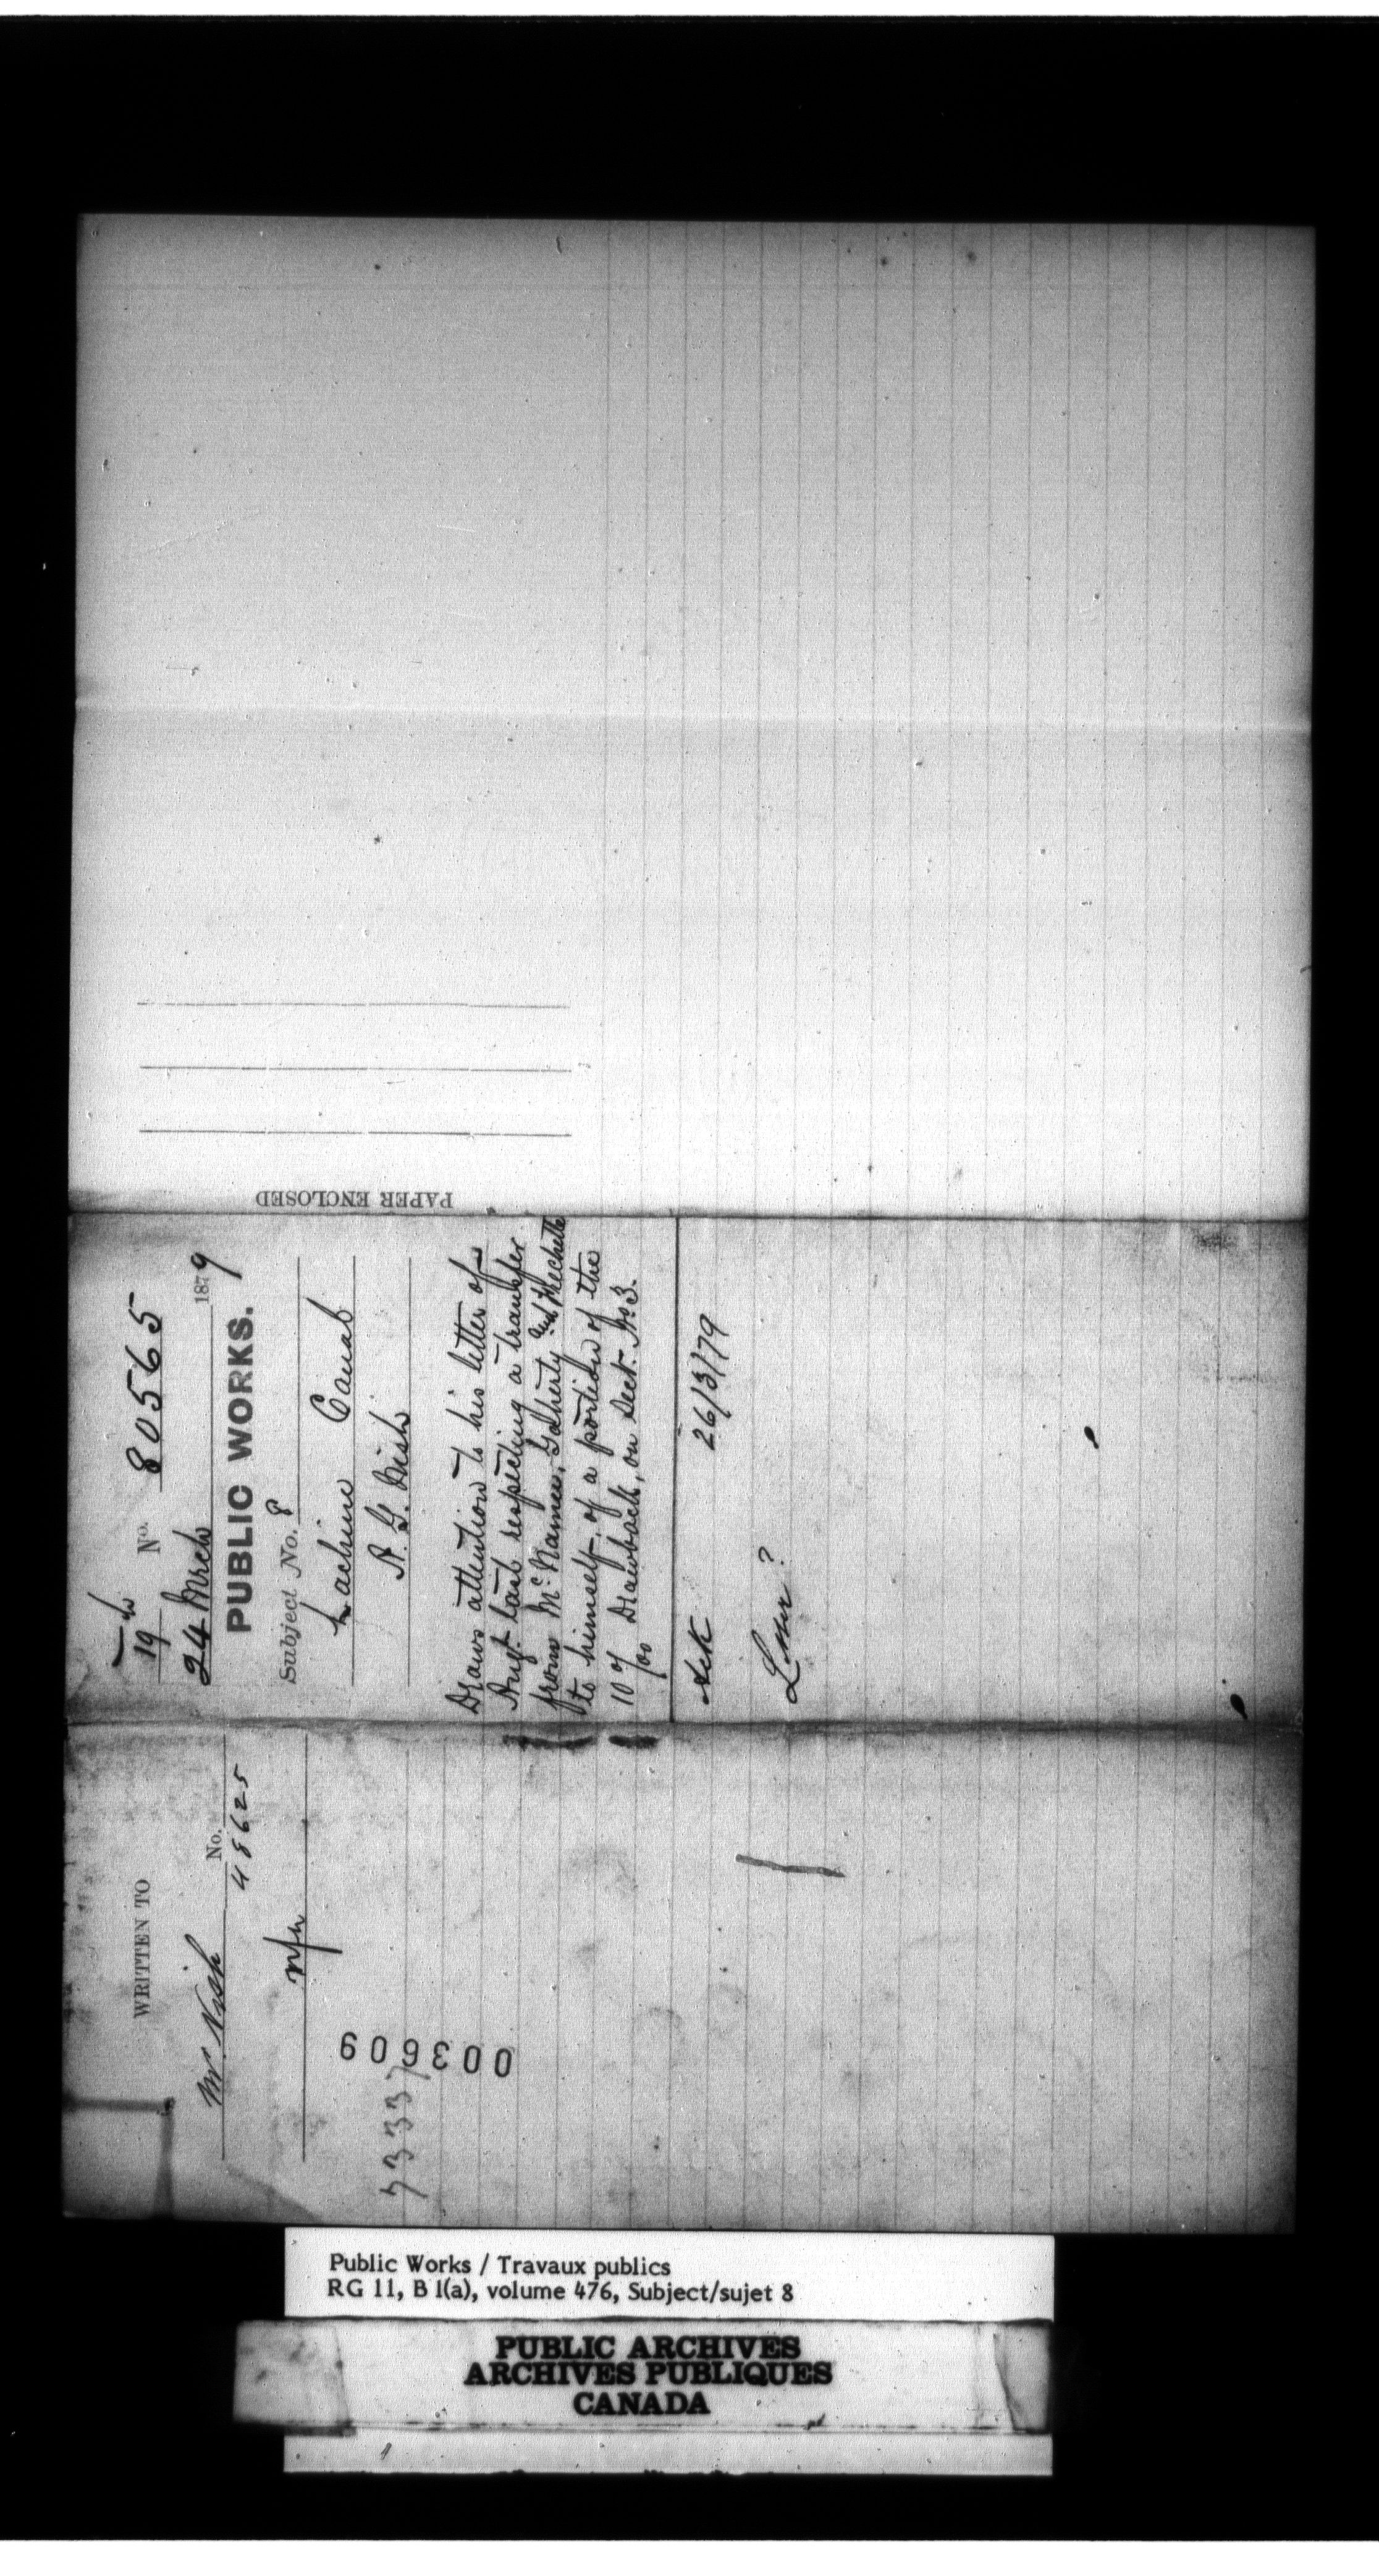 PAPER ENCLOSED
19 No. 80565
24 Mrch 1879
PUBLIC WORKS.
Subject No. 8
Lachine Canal
A. G. Nish
Draws attention to his letter of
Aug. last respecting a transfer
from Mc.Namee, Gaherty and Frechette
to himself, of a portion of the
10 % Drawback, on Sect. No 3.
Ack 26/3/79
WRITTEN TO
No.
Mr. Nish 48625
003609
73337
Public Works / Travaux publics
RG 11, B 1(a), volume 476, Subject/sujet 8
PUBLIC ARCHIVES
ARCHIVES PUBLIQUES
CANADA